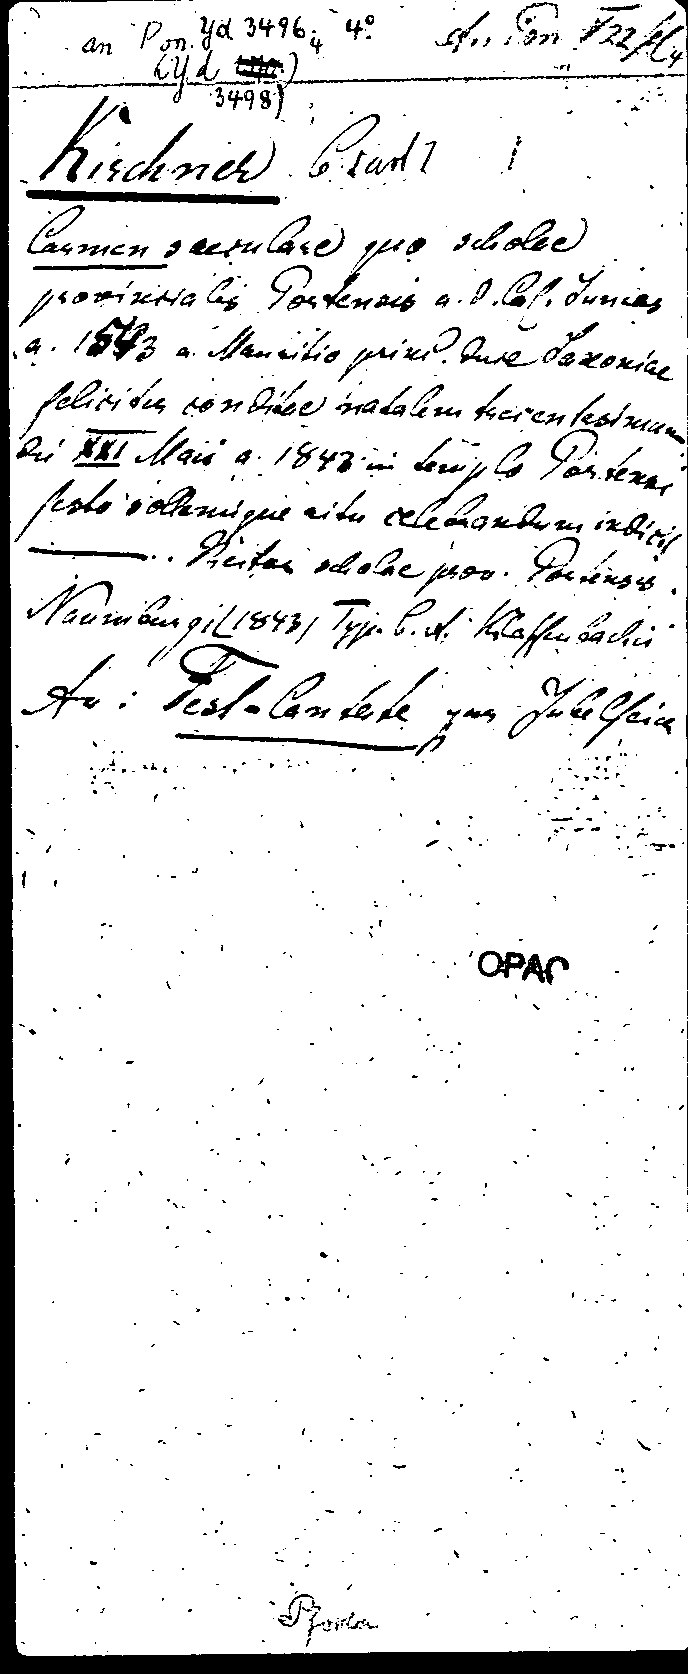 an Pon. Yd 3496, 4 4°
An Pon
(Yd 3498)
Kirchner Carl
Carmen saeculare quo scholae
provincialis Portensis a. d. Cal. Junias
a. 1543 a Mauritio princ. duce Saxoniae
feliciter conditae natalem trecentesimum
die XXI Maii a. 1843 in templo Portensi
festo sollemnique ritu celebrandum indicit
———. Rector scholae prov. Portensis.
Naumburgi (1843) Typ. C. A. Klaffenbachii
An: Fest-Cantate zur Jubelfeier
OPAC
Pforta